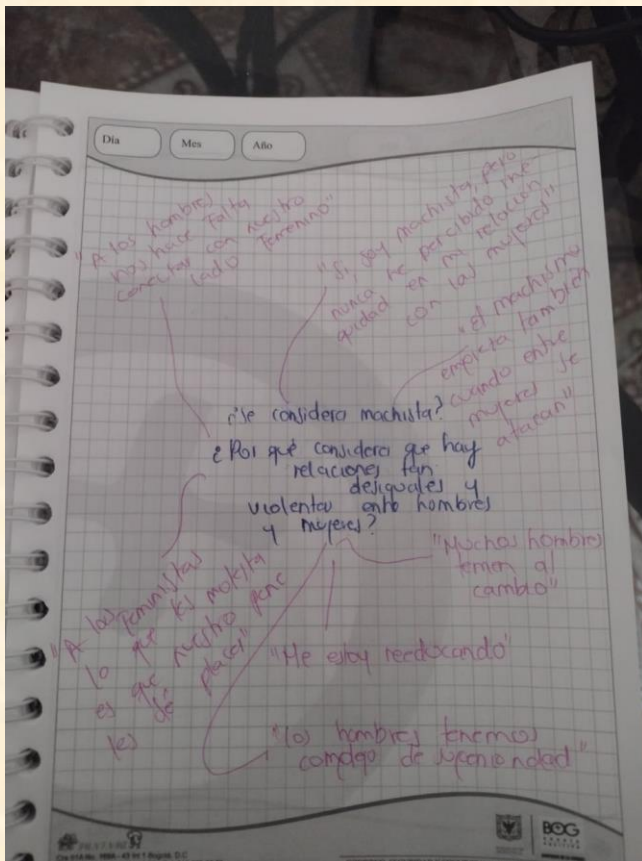 Día
Mes
Año
"A los hombres
nos hace falta
conectar con nuestro
lado femenino"
"Si, soy machista, pero
nunca he percibido ine-
quidad en mi relación
con las mujeres"
"el machismo
empieza tambien
cuando entre
mujeres se
atacan"
¿Se considera machista?
¿Por qué considera que hay
relaciones tan
desiguales y
violentas entre hombres
y mujeres?
"Muchos hombres
temen al
cambio"
"A las feministas
lo que les molesta
es que nuestro pene
les dé placer"
"Me estoy reeducando"
"los hombres tenemos
complejo de superioridad"
BOG